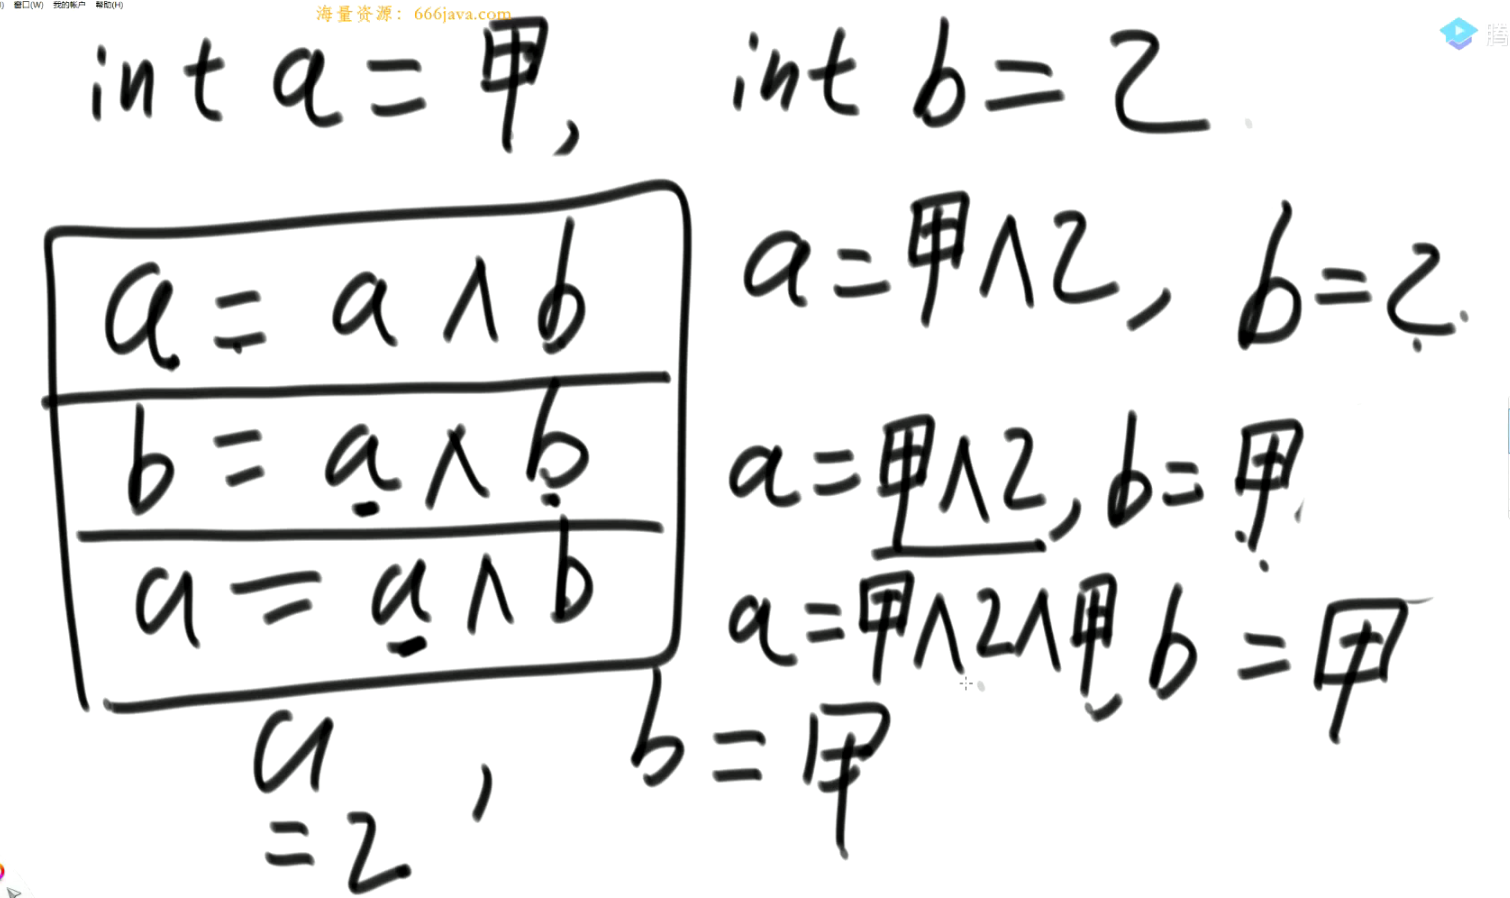 窗口(W) 我的帐户 帮助(H)
海量资源：666java.com
腾
int a = 甲, int b = 乙
a = a ^ b
b = a ^ b
a = a ^ b
a = 甲 ^ 乙, b = 乙.
a = 甲 ^ 乙, b = 甲.
a = 甲 ^ 乙 ^ 甲 b = 甲
a , b = 甲
= 乙